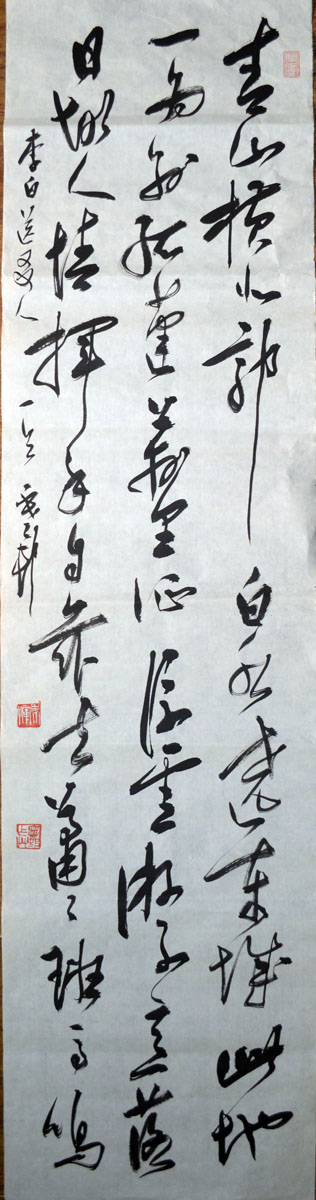 青山横北郭白水遶東城此地
一為別孤蓬萬里征浮雲游子意落
日故人情揮手自茲去蕭々班馬鳴
李白送友人一首